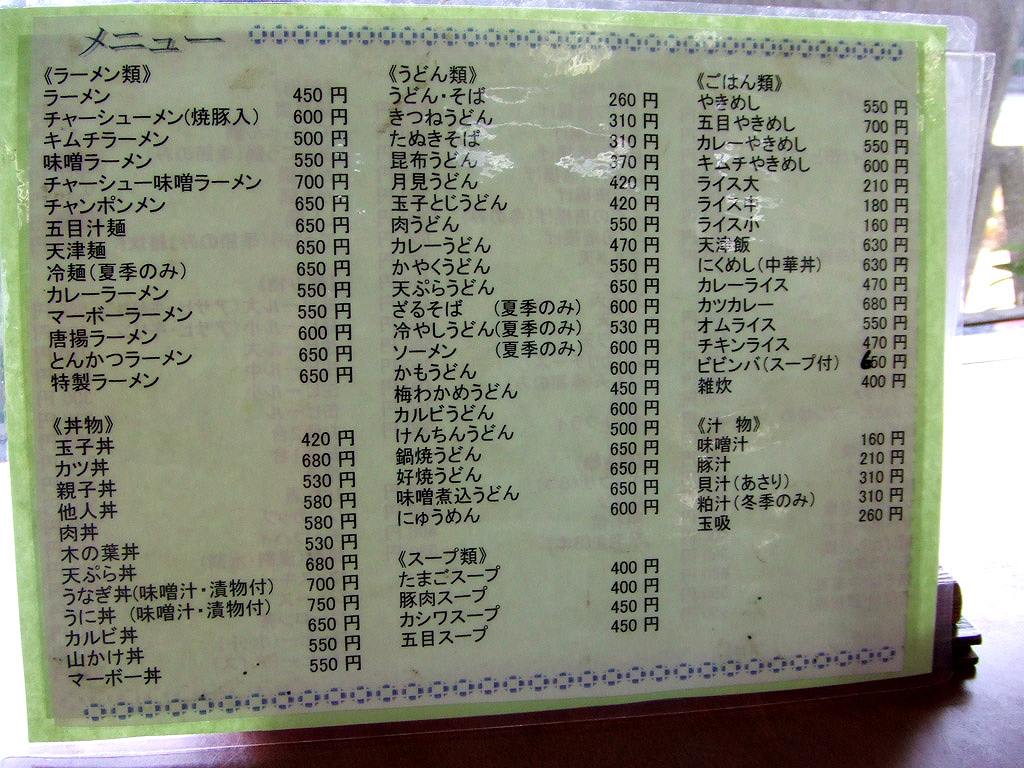 メニュー
《ラーメン類》
ラーメン 450 円
チャーシューメン(焼豚入) 600 円
キムチラーメン 500 円
味噌ラーメン 550 円
チャーシュー味噌ラーメン 700 円
チャンポンメン 650 円
五目汁麺 650 円
天津麺 650 円
冷麺(夏季のみ) 650 円
カレーラーメン 550 円
マーボーラーメン 550 円
唐揚ラーメン 600 円
とんかつラーメン 650 円
特製ラーメン 650 円
《丼物》
玉子丼 420 円
カツ丼 680 円
親子丼 530 円
他人丼 580 円
肉丼 580 円
木の葉丼 530 円
天ぷら丼 680 円
うなぎ丼(味噌汁・漬物付) 700 円
うに丼 (味噌汁・漬物付) 750 円
カルビ丼 650 円
山かけ丼 550 円
マーボー丼 550 円
《うどん類》
うどん・そば 260 円
きつねうどん 310 円
たぬきそば 310 円
昆布うどん 370 円
月見うどん 420 円
玉子とじうどん 420 円
肉うどん 550 円
カレーうどん 470 円
かやくうどん 550 円
天ぷらうどん 650 円
ざるそば (夏季のみ) 600 円
冷やしうどん(夏季のみ) 530 円
ソーメン (夏季のみ) 600 円
かもうどん 600 円
梅わかめうどん 450 円
カルビうどん 600 円
けんちんうどん 500 円
鍋焼うどん 650 円
好焼うどん 650 円
味噌煮込うどん 650 円
にゅうめん 600 円
《スープ類》
たまごスープ 400 円
豚肉スープ 400 円
カシワスープ 450 円
五目スープ 450 円
《ごはん類》
やきめし 550 円
五目やきめし 700 円
カレーやきめし 550 円
キムチやきめし 600 円
ライス大 210 円
ライス中 180 円
ライス小 160 円
天津飯 630 円
にくめし(中華丼) 630 円
カレーライス 470 円
カツカレー 680 円
オムライス 550 円
チキンライス 470 円
ビビンバ(スープ付) 650 円
雑炊 400 円
《汁 物》
味噌汁 160 円
豚汁 210 円
貝汁(あさり) 310 円
粕汁(冬季のみ) 310 円
玉吸 260 円